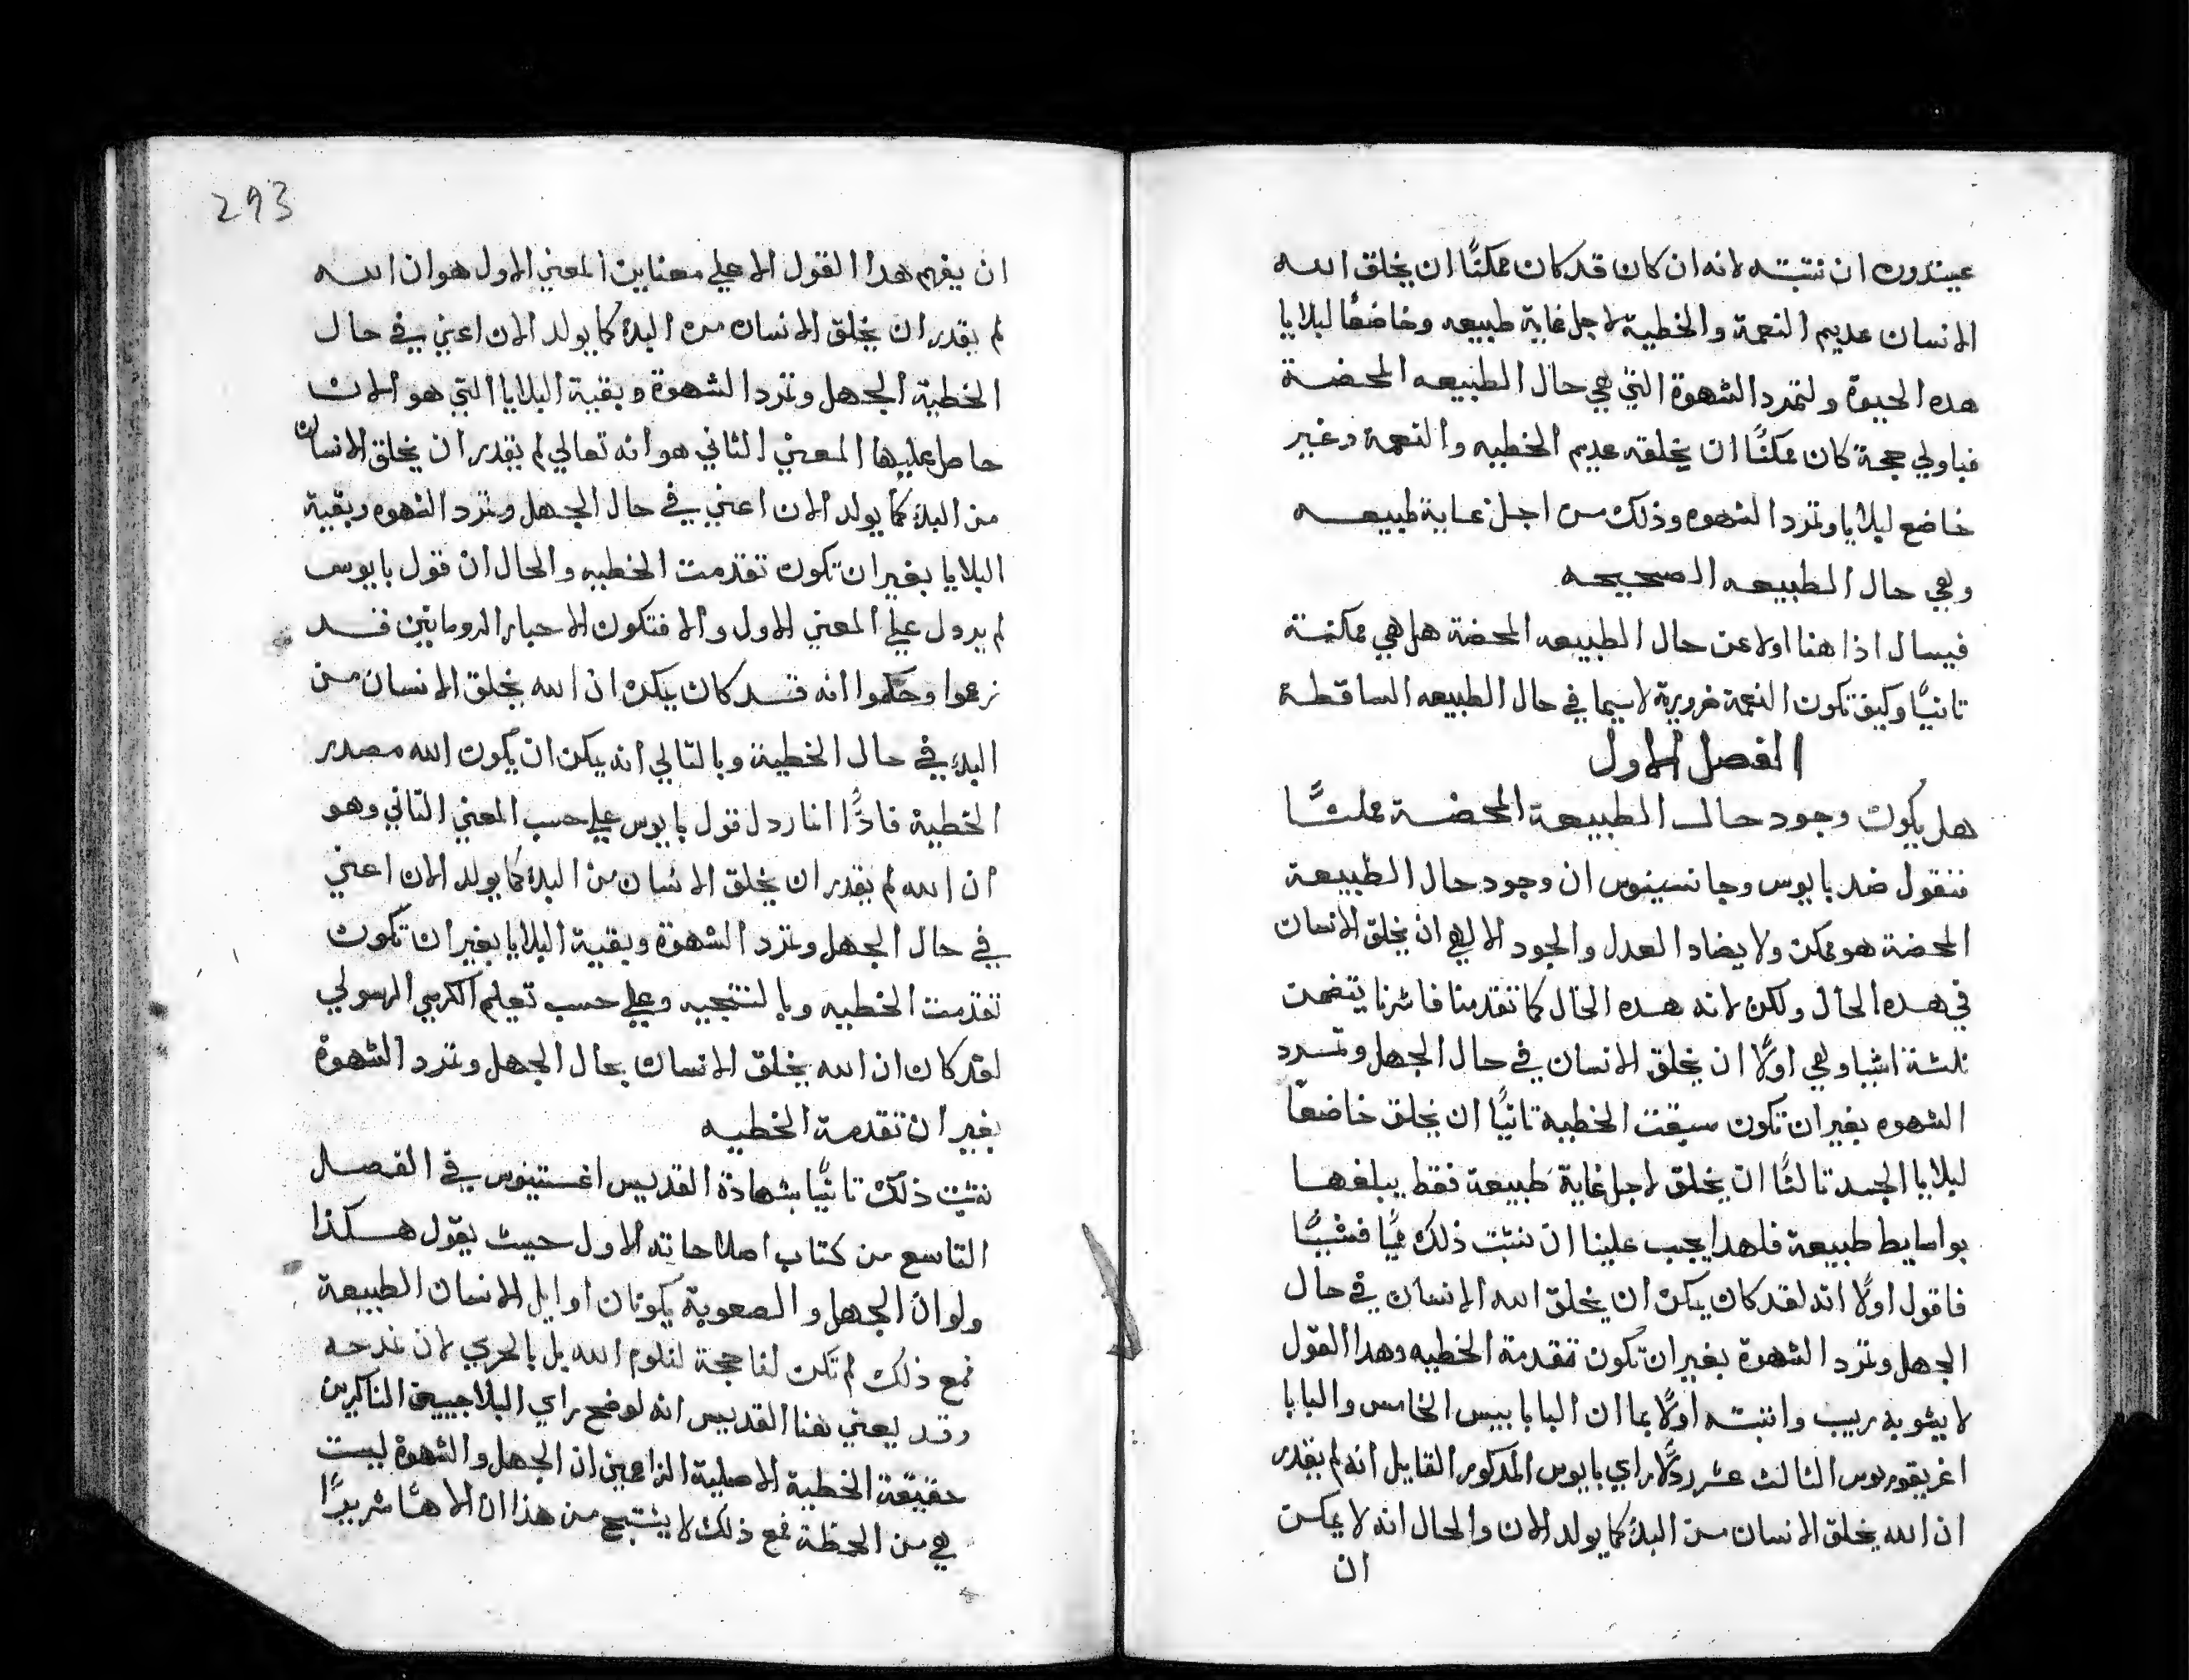 عيتدون ان نتبته لانه ان كان قد كان ممكنًا ان يخلق الله
الانسان عديم النعمة والخطية لاجل غاية طبيعه وخاضعًا لبلايا
هده الحيوة ولتمرد الشهوة التي هي حال الطبيعه المحضة
فباولي حجة كان ممكنًا ان يخلقه عديم الخطيه والنعمة وغير
خاضع لبلايا وتمرد الشهوه وذلك من اجل غاية طبيعه
وهي حال الطبيعه الصحيحه
فيسال اذا هنا اولا عن حال الطبيعه المحضة هل هي ممكنة
تانيًا وكيف تكون النعمة ضرورية لاسيما في حال الطبيعه الساقطة
الفصل الاول
هل يكون وجود حال الطبيعة المحضة ممكنًا
فنقول ضد بايوس وجانسينوس ان وجود حال الطبيعة
المحضة هو ممكن ولا يضاد العدل والجود الالهي ان يخلق الانسان
في هده الحال ولكن لانه هده الحال كما تقدمنا فاشرنا يتضمن
ثلثة اشيا وهي اولًا ان يخلق الانسان في حال الجهل وتمرد
الشهوه بغير ان تكون سبقت الخطية تانيًا ان يخلق خاضعًا
لبلايا الجسد تالثًا ان يخلق لاجل غاية طبيعة فقط يبلغها
بوسايط طبيعة فلهدا يجب علينا ان نثبت ذلك شيًا فشيًا
فاقول اولًا انه لقد كان يمكن ان يخلق الله الانسان في حال
الجهل وتمرد الشهوة بغير ان تكون تقدمة الخطيه وهدا القول
لا يشوبه ريب واتبته اولًا بما ان البابا بيس الخامس والبابا
اغريقوريوس الثالث عشر ردلا راي بايوس المدكور القايل انه لم يقدر
ان الله يخلق الانسان من البدء كما يولد الان والحال انه لا يمكن
ان
293
ان يفهم هدا القول الا علي معنايين المعني الاول هو ان الله
لم يقدر ان يخلق الانسان من البدء كما يولد الان اعني في حال
الخطية الجهل وتمرد الشهوة وبقية البلايا التي هو الان
حاصل عليها المعني الثاني هو انه تعالي لم يقدر ان يخلق الانسان
من البدء كما يولد الان اعني في حال الجهل وتمرد الشهوه وبقية
البلايا بغير ان تكون تقدمت الخطيه والحال ان قول بايوس
لم يردل علي المعني الاول والا فتكون الاحبار الرومانيين قد
زعموا وحكموا انه قد كان يمكن ان الله يخلق الانسان من
البدء في حال الخطية وبالتالي انه يمكن ان يكون الله مصدر
الخطية فاذًا انما ردل قول بايوس علي حسب المعني التاني وهو
ان الله لم يقدر ان يخلق الانسان من البدء كما يولد الان اعني
في حال الجهل وتمرد الشهوة وبقية البلايا بغير ان تكون
تقدمت الخطيه وبالنتجيه وعلي حسب تعليم الكرسي الرسولي
لقد كان ان الله يخلق الانسان بحال الجهل وتمرد الشهوة
بغير ان تقدمة الخطيه
نتبت ذلك تانيًا بشهادة القديس اغستينوس في الفصل
التاسع من كتاب اصلاحاته الاول حيث يقول هكذا
ولو ان الجهل والصعوبة يكونان اوايل الانسان الطبيعة
فمع ذلك لم تكن لنا حجة لنلوم الله بل بالحري لان نمدحه
وقد يعني هنا القديس انه لو صح راي البلاجيين الناكرين
حقيقة الخطية الاصلية الزاعمين ان الجهل والشهوة ليست
هي من الخطة فمع ذلك لا ينتج من هذا ان الاهًا شريرًا